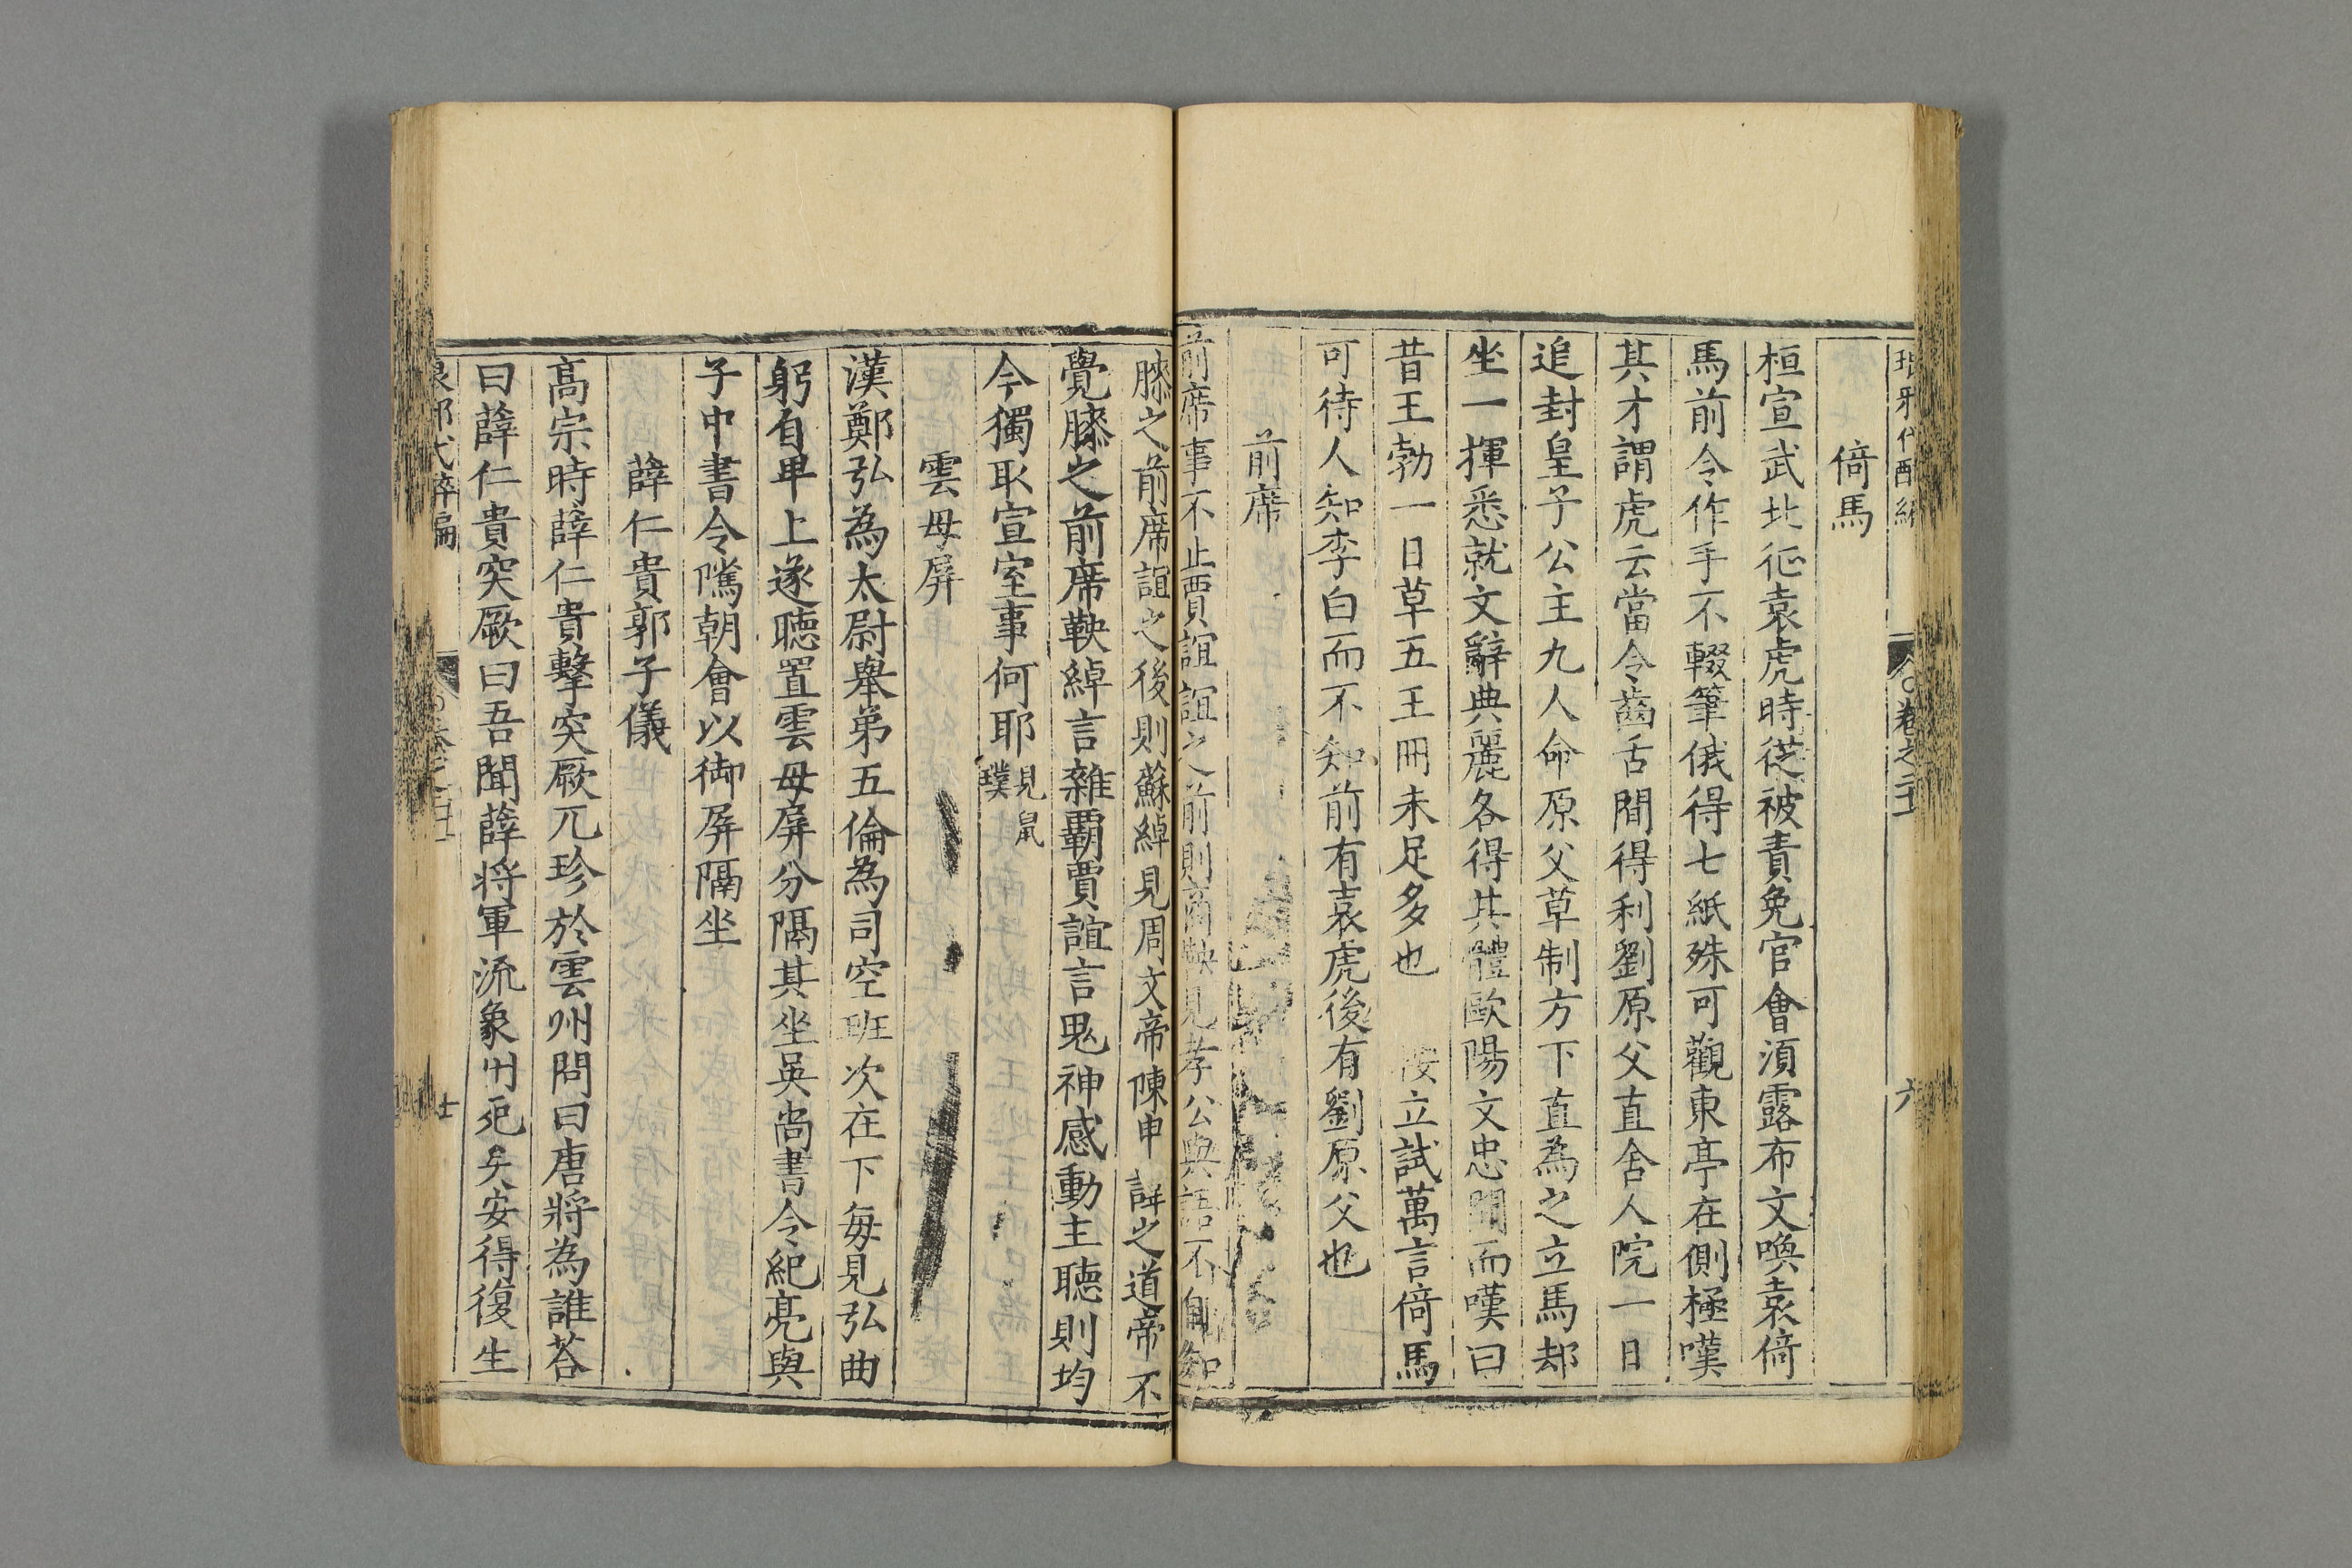 琅邪代醉編 卷之二十 六
倚馬
桓宣武北征袁虎時從被責免官會須露布文喚袁倚
馬前令作手不輟筆俄得七紙殊可觀東亭在側極嘆
其才謂虎云當令齒舌間得利劉原父直舍人院一日
追封皇子公主九人命原父草制方下直為之立馬却
坐一揮悉就文辭典麗各得其體歐陽文忠聞而嘆曰
昔王勃一日草五王冊未足多也 按立試萬言倚馬
可待人知李白而不知前有袁虎後有劉原父也
前席
前席事不止賈誼誼之前則商鞅見孝公與語不自知
膝之前席誼之後則蘇綽見周文帝陳申韓之道帝不
覺膝之前席鞅綽言雜霸賈誼言鬼神感動主聴則均
今獨取宣室事何耶見鼠璞
雲母屏
漢鄭弘為太尉舉弟五倫為司空班次在下每見弘曲
躬自卑上遂聴置雲母屏分隔其坐吳尚書令紀亮與
子中書令隲朝會以御屏隔坐
薛仁貴郭子儀
高宗時薛仁貴擊突厥兀珍於雲州問曰唐將為誰荅
曰薛仁貴突厥曰吾聞薛將軍流象州死矣安得復生
琅邪代醉編